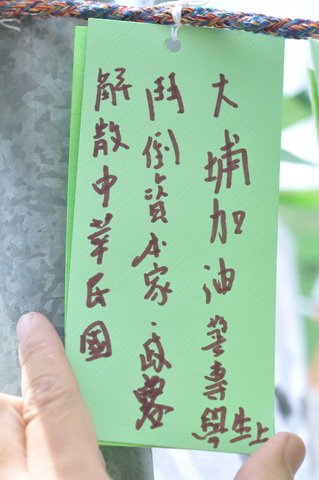 大埔加油 專學生上
鬥倒資本家、政黨
解散中華民國